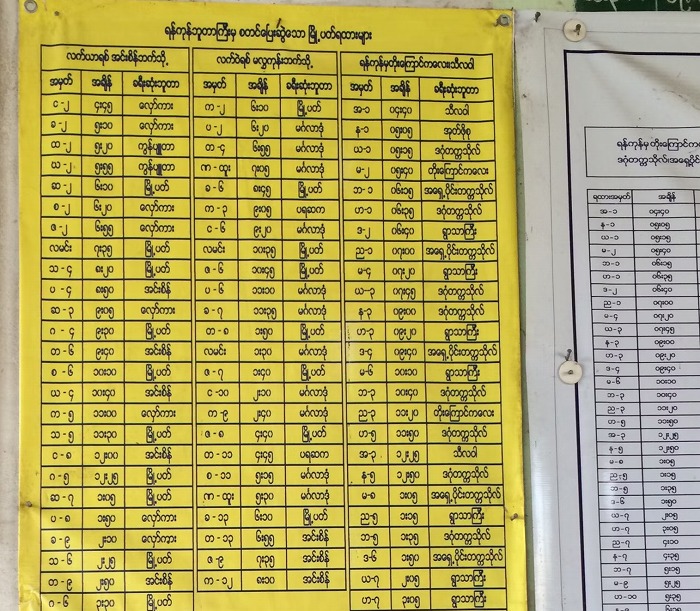 ရန်ကုန်ဘူတာကြီးမှ စတင်ပြေးဆွဲသော မြို့ပတ်ရထားများ
လက်ယာရစ် အင်းစိန်ဘက်သို့ လက်ဝဲရစ် မလွှကုန်းဘက်သို့ ရန်ကုန်မှတိုးကြောင်ကလေး၊သီလဝါ
အမှတ် အချိန် ခရီးဆုံးဘူတာ အမှတ် အချိန် ခရီးဆုံးဘူတာ အမှတ် အချိန် ခရီးဆုံးဘူတာ
င-၂ ၄း၄၅ လှော်ကား က-၂ ၆း၁၀ မြို့ပတ် အ-၁ ၀၄း၄၀ သီလဝါ
ခ-၂ ၅း၁၀ လှော်ကား ပ-၂ ၆း၂၀ မင်္ဂလာဒုံ န-၁ ၀၅း၀၅ အုတ်ဖိုစု
ထ-၂ ၅း၂၀ ကွန်ပျူတာ တ-၄ ၆း၅၅ မင်္ဂလာဒုံ ယ-၁ ၀၅း၁၅ ဒဂုံတက္ကသိုလ်
ယ-၂ ၅း၅၅ ကွန်ပျူတာ ဏ-ထူး ၇း၀၅ မင်္ဂလာဒုံ မ-၂ ၀၅း၄၀ တိုးကြောင်ကလေး
ဆ-၂ ၆း၁၀ မြို့ပတ် ခ-၆ ၈း၄၅ မင်္ဂလာဒုံ ဘ-၁ ၀၆း၁၅ အရှေ့ပိုင်းတက္ကသိုလ်
စ-၂ ၆း၂၀ လှော်ကား က-၃ ၉း၀၅ ပရဆက ဟ-၁ ၀၆း၃၅ ဒဂုံတက္ကသိုလ်
ဇ-၂ ၆း၅၅ လှော်ကား င-၆ ၉း၂၀ မင်္ဂလာဒုံ ဒ-၂ ၀၆း၄၀ ရွာသာကြီး
လမင်း ၇း၃၅ မြို့ပတ် လမင်း ၁၀း၃၅ မြို့ပတ် ည-၁ ၀၇း၀၀ အရှေ့ပိုင်းတက္ကသိုလ်
သ-၄ ၈း၂၀ မြို့ပတ် ဇ-၆ ၁၀း၄၅ မြို့ပတ် မ-၄ ၀၇း၂၀ ရွာသာကြီး
ပ-၄ ၈း၅၀ အင်းစိန် ပ-၆ ၁၁း၁၀ မင်္ဂလာဒုံ ယ-၃ ၀၇း၄၅ ဒဂုံတက္ကသိုလ်
ဆ-၃ ၉း၀၅ လှော်ကား ခ-၇ ၁၁း၃၅ မင်္ဂလာဒုံ န-၃ ၀၉း၀၀ ဒဂုံတက္ကသိုလ်
ဂ-၄ ၉း၃၀ မြို့ပတ် တ-၈ ၁း၅၀ မြို့ပတ် ဟ-၃ ၀၉း၂၀ ရွာသာကြီး
တ-၆ ၉း၄၀ အင်းစိန် လမင်း ၁း၃၀ မင်္ဂလာဒုံ ဒ-၄ ၀၉း၄၀ အရှေ့ပိုင်းတက္ကသိုလ်
စ-၆ ၁၀း၁၀ မြို့ပတ် ဇ-၇ ၁း၄၀ မြို့ပတ် မ-၆ ၁၀း၁၀ ရွာသာကြီး
ယ-၄ ၁၀း၄၀ အင်းစိန် င-၁၀ ၂း၁၀ မင်္ဂလာဒုံ ဘ-၃ ၁၀း၄၀ ဒဂုံတက္ကသိုလ်
က-၅ ၁၁း၀၀ လှော်ကား က-၉ ၂း၄၀ မင်္ဂလာဒုံ ည-၃ ၁၁း၂၀ တိုးကြောင်ကလေး
သ-၅ ၁၁း၃၀ မြို့ပတ် ဇ-၈ ၄း၄၀ မြို့ပတ် ဟ-၅ ၁၁း၅၀ ဒဂုံတက္ကသိုလ်
င-၈ ၁၂း၀၀ အင်းစိန် တ-၁၁ ၄း၄၅ ပရဆက အ-၃ ၁၂း၂၅ သီလဝါ
ဂ-၅ ၁၂း၂၅ မြို့ပတ် စ-၁၁ ၅း၁၅ မင်္ဂလာဒုံ န-၅ ၁၂း၅၀ ဒဂုံတက္ကသိုလ်
ဆ-၇ ၁း၀၅ မြို့ပတ် ဏ-ထူး ၅း၃၀ မင်္ဂလာဒုံ မ-၈ ၁း၀၅ အရှေ့ပိုင်းတက္ကသိုလ်
ပ-၈ ၁း၅၀ လှော်ကား ခ-၁၃ ၆း၁၀ မြို့ပတ် ည-၅ ၁း၁၅ ရွာသာကြီး
ခ-၉ ၂း၁၀ လှော်ကား တ-၁၃ ၆း၅၅ အင်းစိန် ဘ-၅ ၁း၃၅ ဒဂုံတက္ကသိုလ်
သ-၆ ၂း၂၅ မြို့ပတ် ဇ-၉ ၇း၃၅ အင်းစိန် ဒ-၆ ၁း၅၀ အရှေ့ပိုင်းတက္ကသိုလ်
တ-၉ ၂း၅၀ အင်းစိန် က-၁၂ ၈း၁၀ အင်းစိန် ယ-၇ ၂း၀၅ ရွာသာကြီး
ဂ-၆ ၃း၃၀ မြို့ပတ် ဟ-၇ ၃း၀၅ ရွာသာကြီး
ရန်ကုန်မှ တိုးကြောင်က
ဒဂုံတက္ကသိုလ်၊အရှေ့ပိုင်
ရထားအမှတ် အချိန်
အ-၁ ၀၄း၄၀
န-၁ ၀၅း၀၅
ယ-၁ ၀၅း၁၅
မ-၂ ၀၅း၄၀
ဘ-၁ ၀၆း၁၅
ဟ-၁ ၀၆း၃၅
ဒ-၂ ၀၆း၄၀
ည-၁ ၀၇း၀၀
မ-၄ ၀၇း၂၀
ယ-၃ ၀၇း၄၅
န-၃ ၀၉း၀၀
ဟ-၃ ၀၉း၂၀
ဒ-၄ ၀၉း၄၀
မ-၆ ၁၀း၁၀
ဘ-၃ ၁၀း၄၀
ည-၃ ၁၁း၂၀
ဟ-၅ ၁၁း၅၀
အ-၃ ၁၂း၂၅
န-၅ ၁၂း၅၀
မ-၈ ၁း၀၅
ည-၅ ၁း၁၅
ဘ-၅ ၁း၃၅
ဒ-၆ ၁း၅၀
ယ-၇ ၂း၀၅
ဟ-၇ ၃း၀၅
ည-၇ ၄း၁၀
န-၇ ၄း၃၅
ဘ-၇ ၅း၁၅
မ-၉ ၅း၂၅
ဟ-၁၀ ၅း၃၅